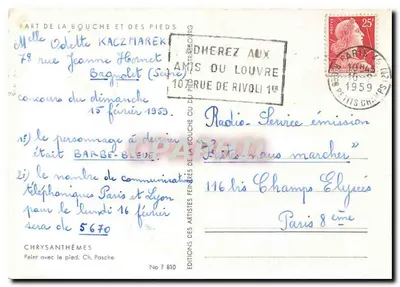 L'ART DE LA BOUCHE ET DES PIEDS
Melle Odette KACZMAREK
7 rue Jeanne Hornet
Bagnolet (Seine)
concours du dimanche
15 février 1959.
1°) le personnage à deviner
était BARBE-BLEUE.
2°) le nombre de communications
téléphoniques Paris et Lyon
pour le lundi 16 février
sera de 5670
CHRYSANTHÈMES
Peint avec le pied. Ch. Pasche
No F 810
ADHEREZ AUX
AMIS DU LOUVRE
107 RUE DE RIVOLI 1er
25F
PARIS
1959
Radio-Service émission
"Faites-nous marcher"
116 bis Champs Elysées
Paris 8ème